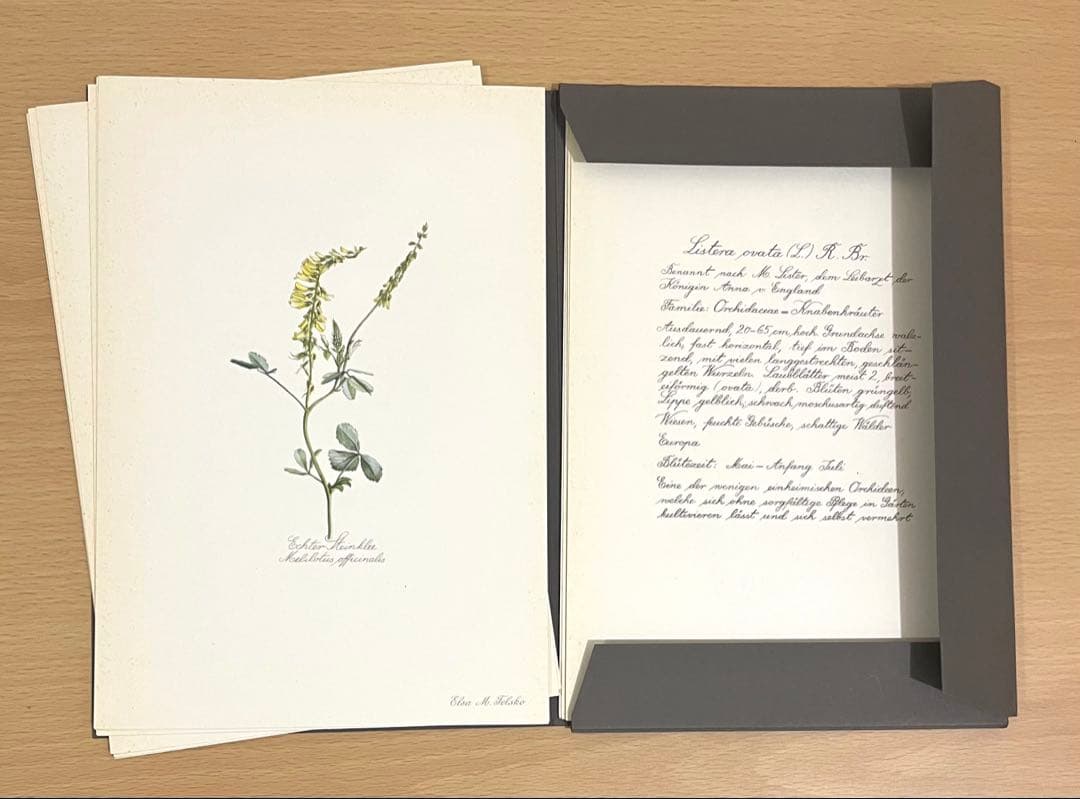 Echter Steinklee
Melilotus officinalis
Elsa M. Felsko
Listera ovata (L.) R. Br.
Benannt nach M. Lister, dem Leibarzt der
Königin Anna v. England
Familie: Orchidaceae = Knabenkräuter
Ausdauernd, 20-65 cm hoch. Grundachse walz-
lich, fast horizontal, tief im Boden sit-
zend, mit vielen langgestreckten, geschlän-
gelten Wurzeln. Laubblätter meist 2, breit-
eiförmig (ovata), derb. Blüten grüngelb,
Lippe gelblich, schwach moschusartig duftend
Wiesen, feuchte Gebüsche, schattige Wälder
Europa
Blütezeit: Mai - Anfang Juli
Eine der wenigen einheimischen Orchideen,
welche sich ohne sorgfältige Pflege in Gärten
kultivieren lässt und sich selbst vermehrt